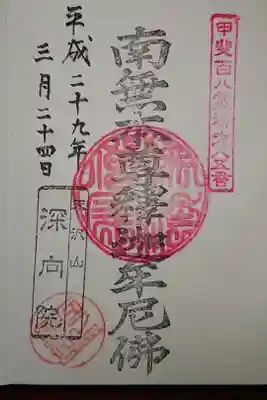 甲斐百八霊場
南無本尊釋迦牟尼佛
平成二十九年
三月二十四日
深向院